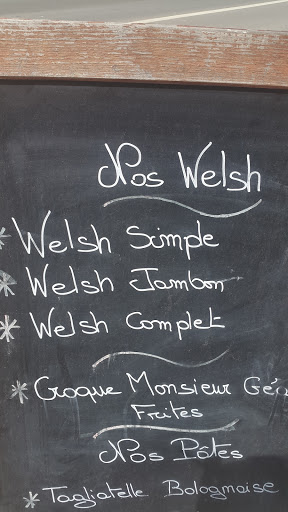 Nos Welsh
* Welsh Simple
* Welsh Jambon
* Welsh Complet
* Croque Monsieur
Frites
Nos Pâtes
* Tagliatelle Bolognaise